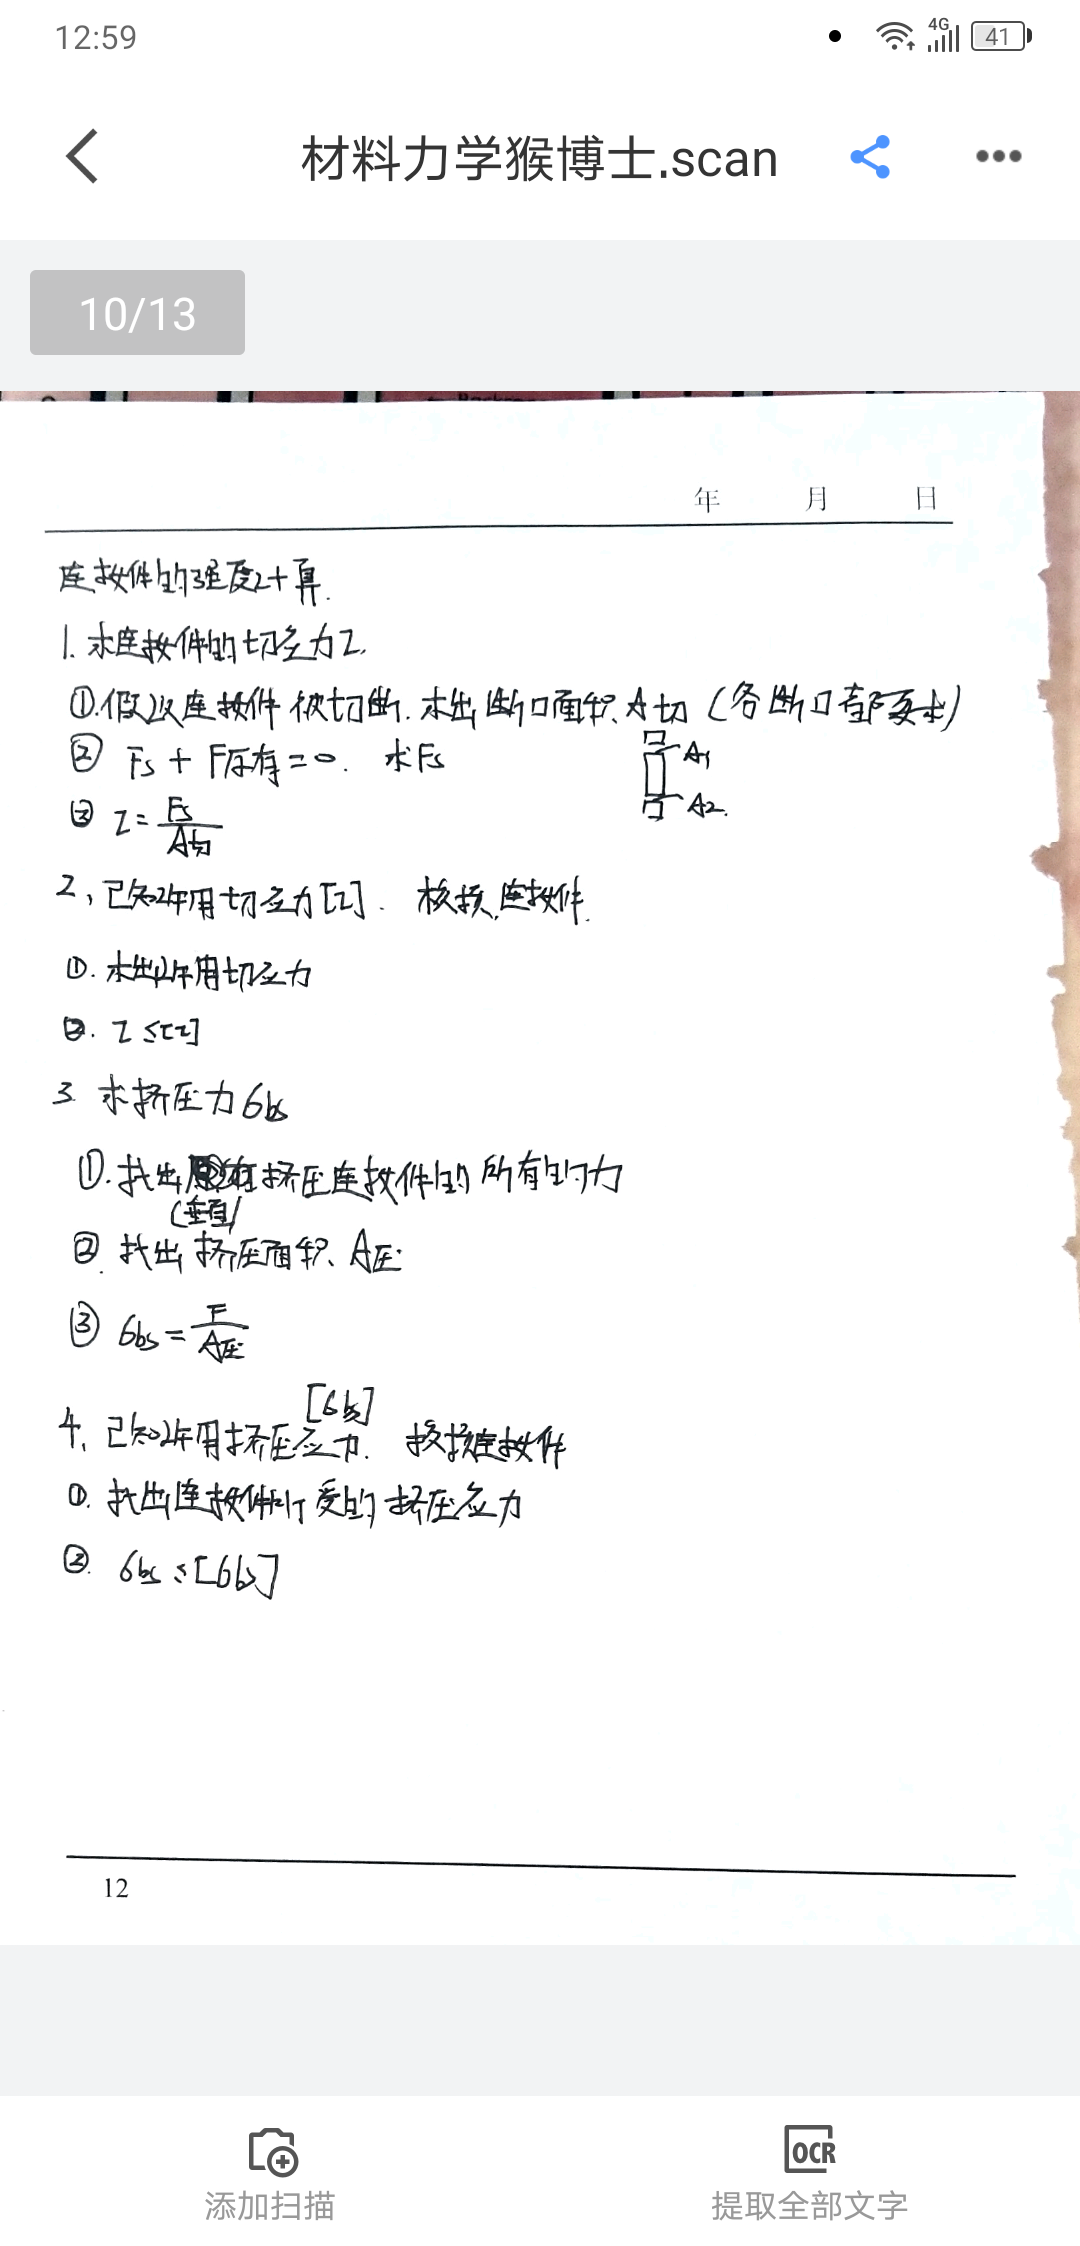 12:59
4G
41
材料力学猴博士.scan
10/13
年 月 日
连接件的强度计算.
1. 求连接件的切应力τ.
①.假设连接件被切断.求出断口面积A切(各断口都要求)
② Fs + F原有=0. 求Fs
A1
A2.
③ τ= Fs/A切
2、已知许用切应力[τ]. 核损连接件.
①. 求出许用切应力
②. τ≤[τ]
3. 求挤压力σbs
①.找出 挤压连接件的所有的力
(垂直)
②. 找出挤压面积、A压
③ σbs= F/A压
[σbs]
4、已知许用挤压应力. 核损连接件
①. 找出连接件所受的挤压应力
②. σbs≤[σbs]
12
添加扫描
OCR
提取全部文字